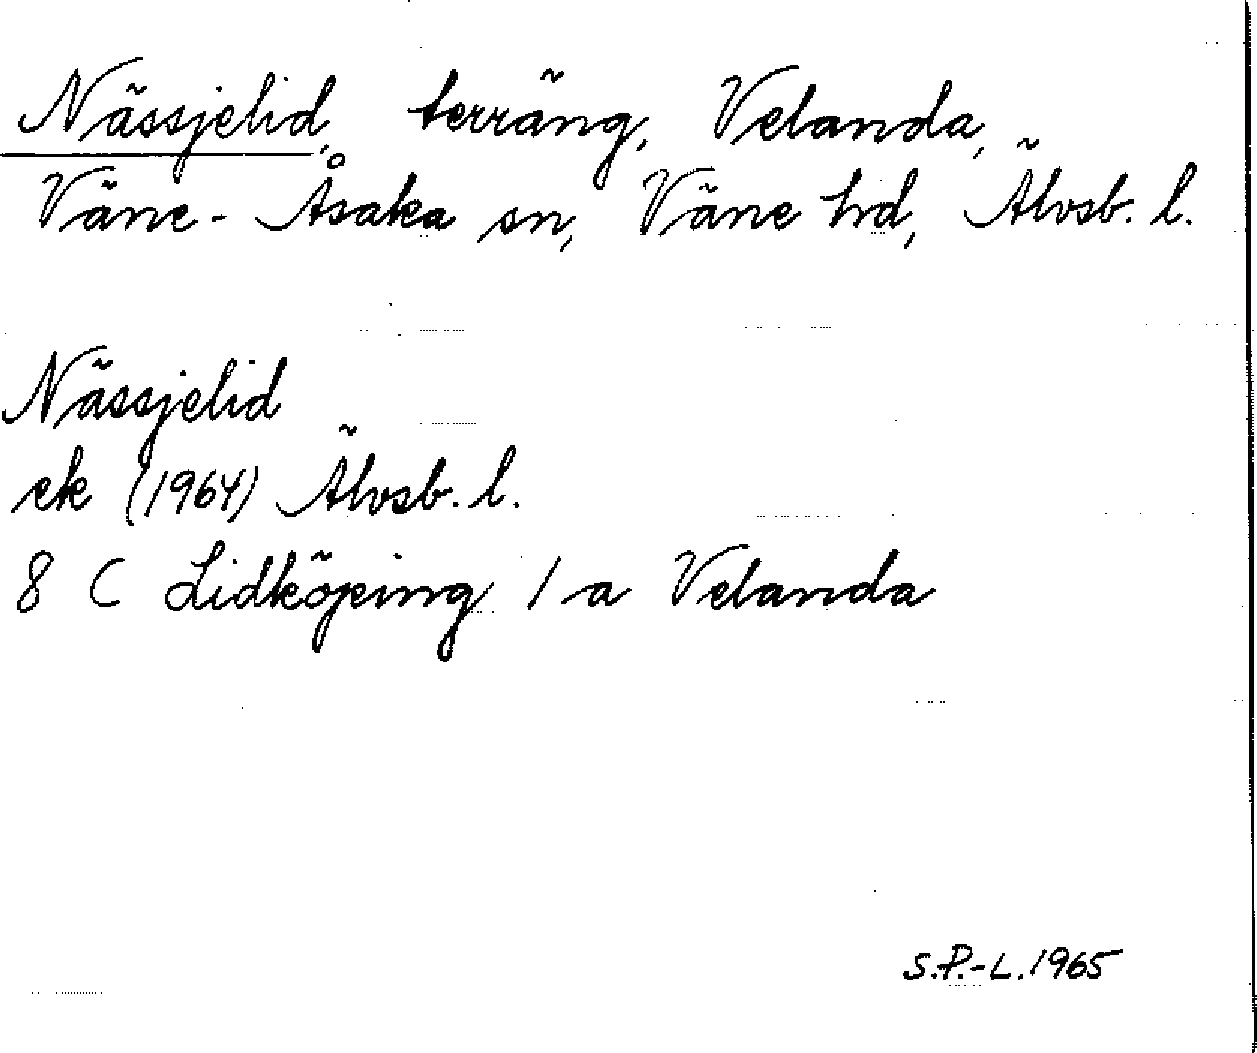 Nässjelid, terräng, Velanda,
Väne-Åsaka sn, Väne hd, Älvsb. l.
Nässjelid
ek (1964) Älvsb. l.
8 C Lidköping 1 a Velanda
S.P.-L. 1965